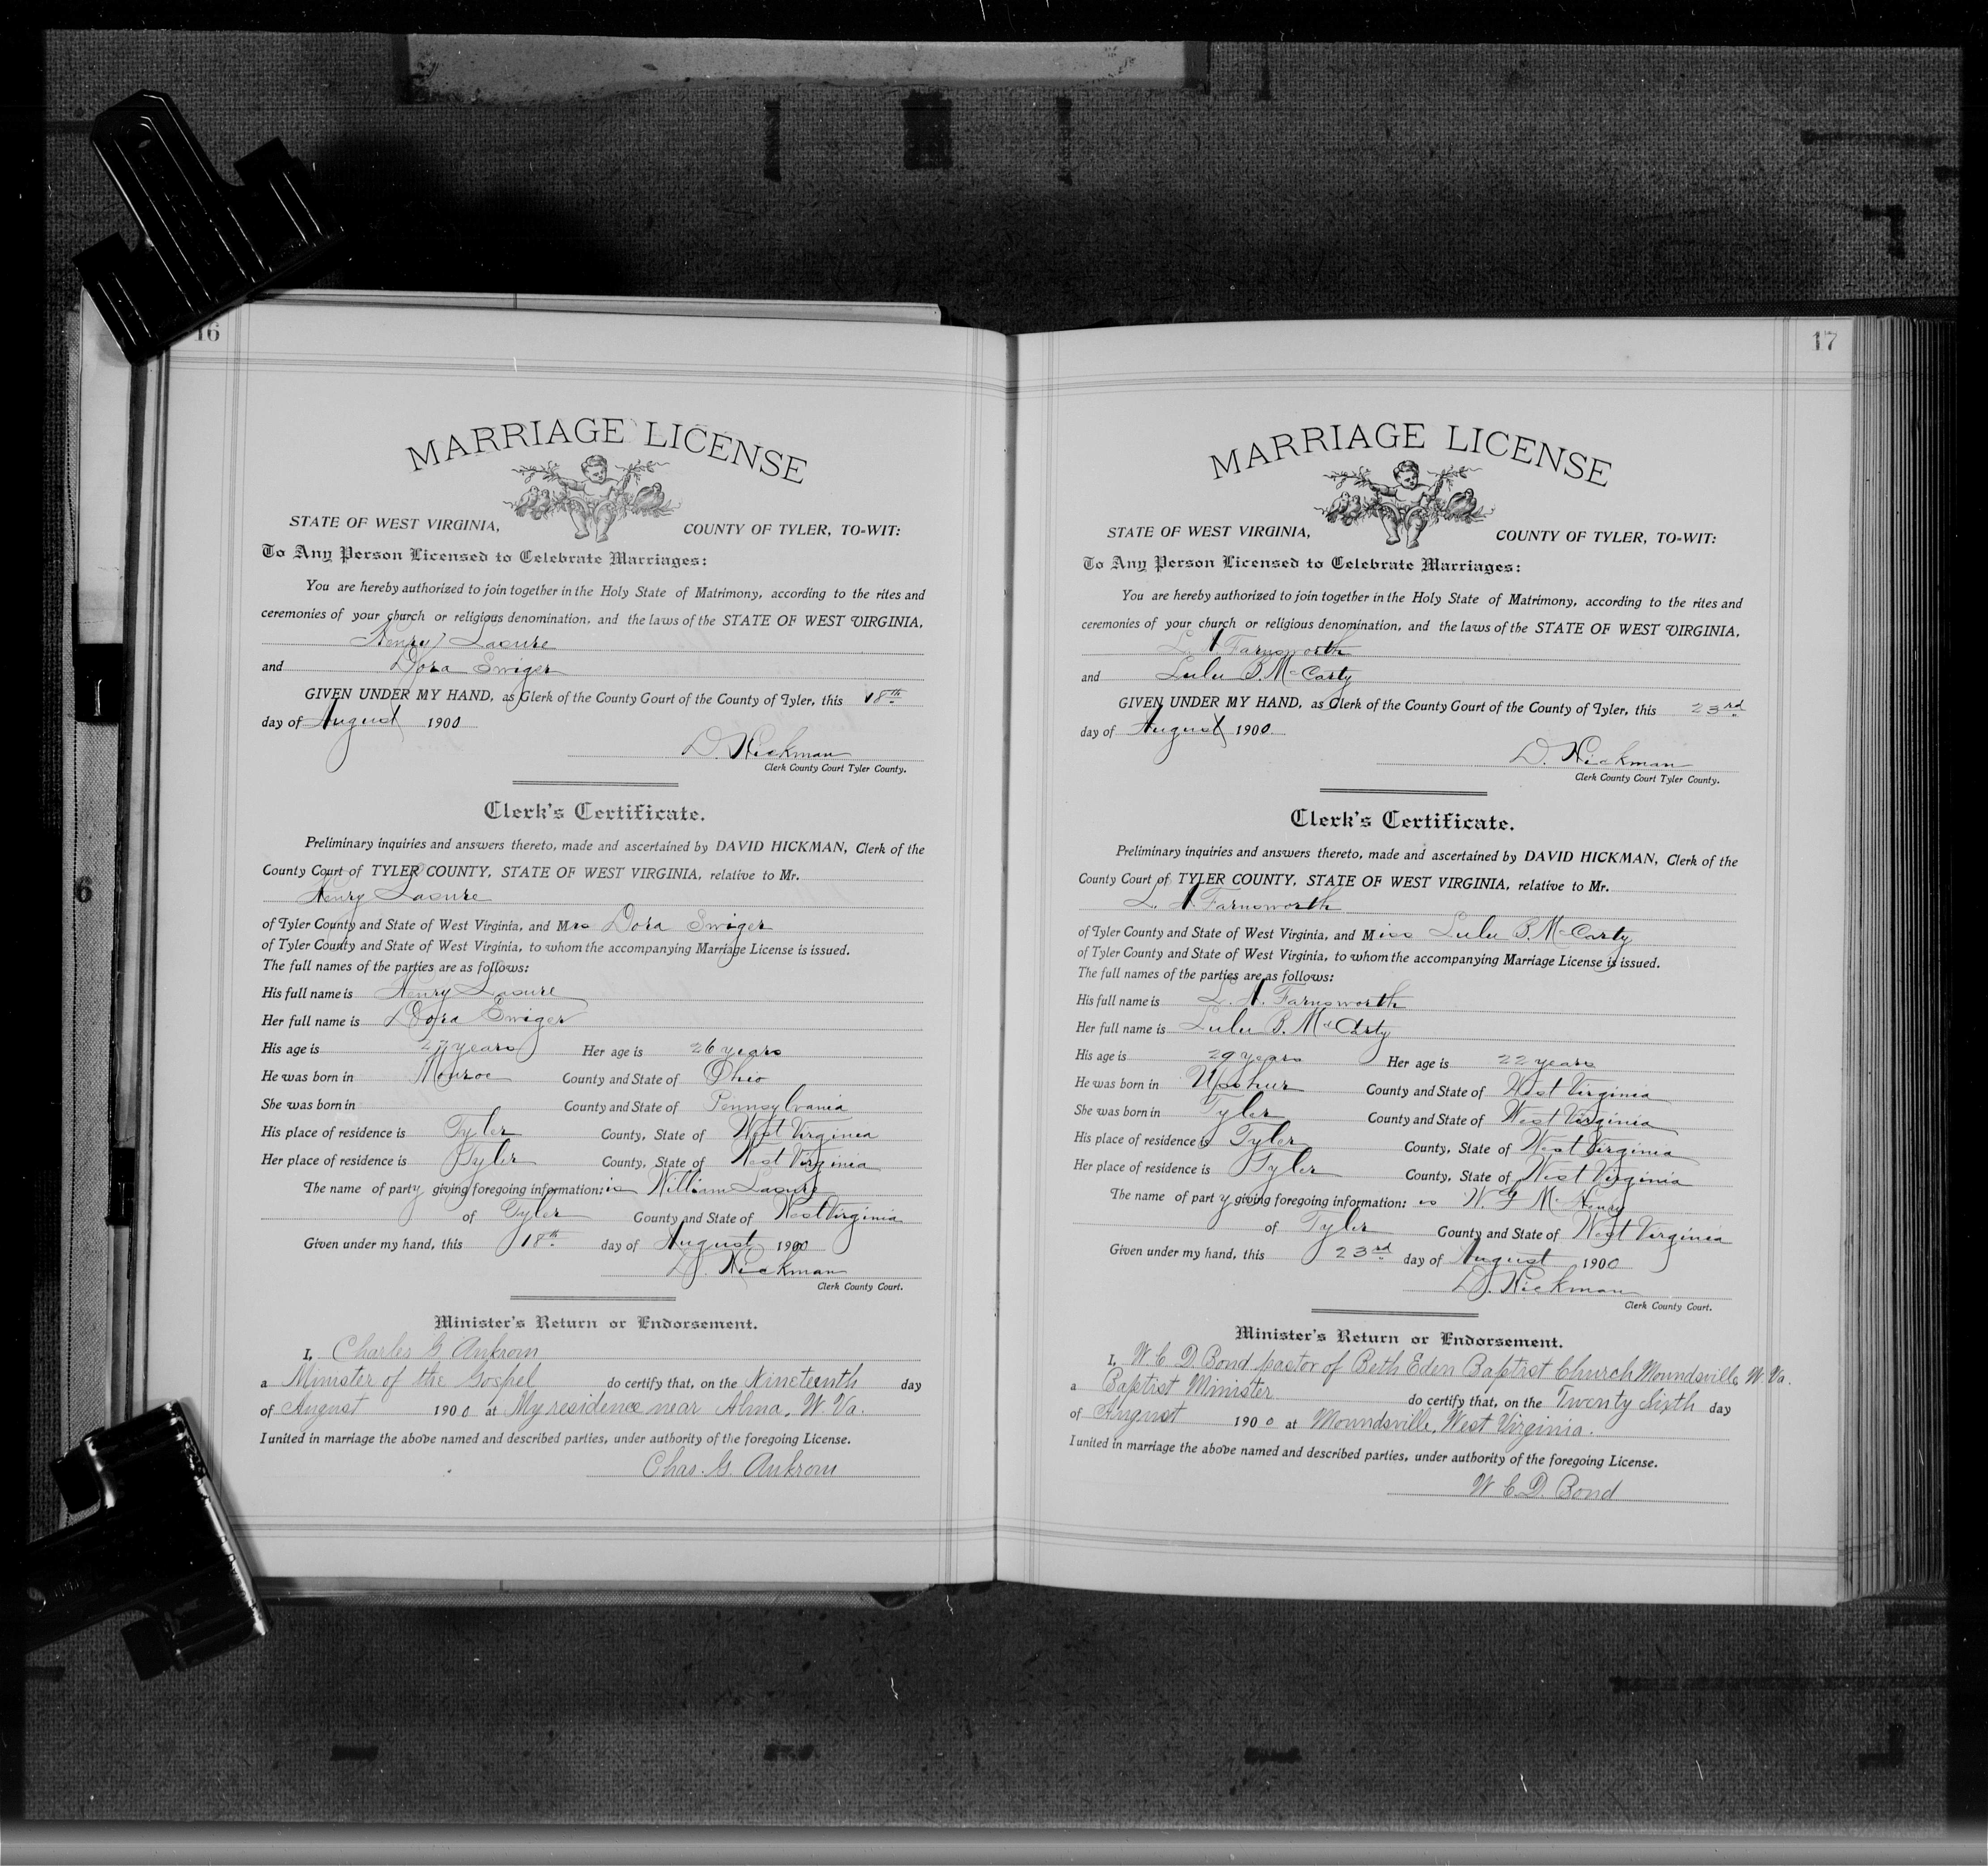 16
MARRIAGE LICENSE
STATE OF WEST VIRGINIA, COUNTY OF TYLER, TO-WIT:
To Any Person Licensed to Celebrate Marriages:
You are hereby authorized to join together in the Holy State of Matrimony, according to the rites and
ceremonies of your church or religious denomination, and the laws of the STATE OF WEST VIRGINIA,
Henry Lasure
and Dora Swiger
GIVEN UNDER MY HAND, as Clerk of the County Court of the County of Tyler, this 18th
day of August 1900
D. Hickman
Clerk County Court Tyler County.
Clerk's Certificate.
Preliminary inquiries and answers thereto, made and ascertained by DAVID HICKMAN, Clerk of the
County Court of TYLER COUNTY, STATE OF WEST VIRGINIA, relative to Mr.
Henry Lasure
of Tyler County and State of West Virginia, and Mrs Dora Swiger
of Tyler County and State of West Virginia, to whom the accompanying Marriage License is issued.
The full names of the parties are as follows:
His full name is Henry Lasure
Her full name is Dora Swiger
His age is 27 years Her age is 26 years
He was born in Monroe County and State of Ohio
She was born in County and State of Pennsylvania
His place of residence is Tyler County, State of West Virginia
Her place of residence is Tyler County, State of West Virginia
The name of party giving foregoing information: is William Lasure
of Tyler County and State of West Virginia
Given under my hand, this 18th day of August 1900
D. Hickman
Clerk County Court.
Minister's Return or Endorsement.
I, Charles G Ankrom
a Minister of the Gospel do certify that, on the Nineteenth day
of August 1900 at My residence near Alma, W. Va.
I united in marriage the above named and described parties, under authority of the foregoing License.
Chas. G. Ankrom
17
MARRIAGE LICENSE
STATE OF WEST VIRGINIA, COUNTY OF TYLER, TO-WIT:
To Any Person Licensed to Celebrate Marriages:
You are hereby authorized to join together in the Holy State of Matrimony, according to the rites and
ceremonies of your church or religious denomination, and the laws of the STATE OF WEST VIRGINIA,
L. A. Farnsworth
and Lulu B. McCarty
GIVEN UNDER MY HAND, as Clerk of the County Court of the County of Tyler, this 23rd
day of August 1900
D. Hickman
Clerk County Court Tyler County.
Clerk's Certificate.
Preliminary inquiries and answers thereto, made and ascertained by DAVID HICKMAN, Clerk of the
County Court of TYLER COUNTY, STATE OF WEST VIRGINIA, relative to Mr.
L. A. Farnsworth
of Tyler County and State of West Virginia, and Miss Lulu B. McCarty
of Tyler County and State of West Virginia, to whom the accompanying Marriage License is issued.
The full names of the parties are as follows:
His full name is L. A. Farnsworth
Her full name is Lulu B. McCarty
His age is 29 years Her age is 22 years
He was born in Upshur County and State of West Virginia
She was born in Tyler County and State of West Virginia
His place of residence is Tyler County, State of West Virginia
Her place of residence is Tyler County, State of West Virginia
The name of party giving foregoing information: is W. F McHenry
of Tyler County and State of West Virginia
Given under my hand, this 23rd day of August 1900
D. Hickman
Clerk County Court.
Minister's Return or Endorsement.
I, W C D. Bond pastor of Beth Eden Baptist Church Moundsville W. Va.
a Baptist Minister do certify that, on the Twenty Sixth day
of August 1900 at Moundsville, West Virginia.
I united in marriage the above named and described parties, under authority of the foregoing License.
W C D. Bond
6